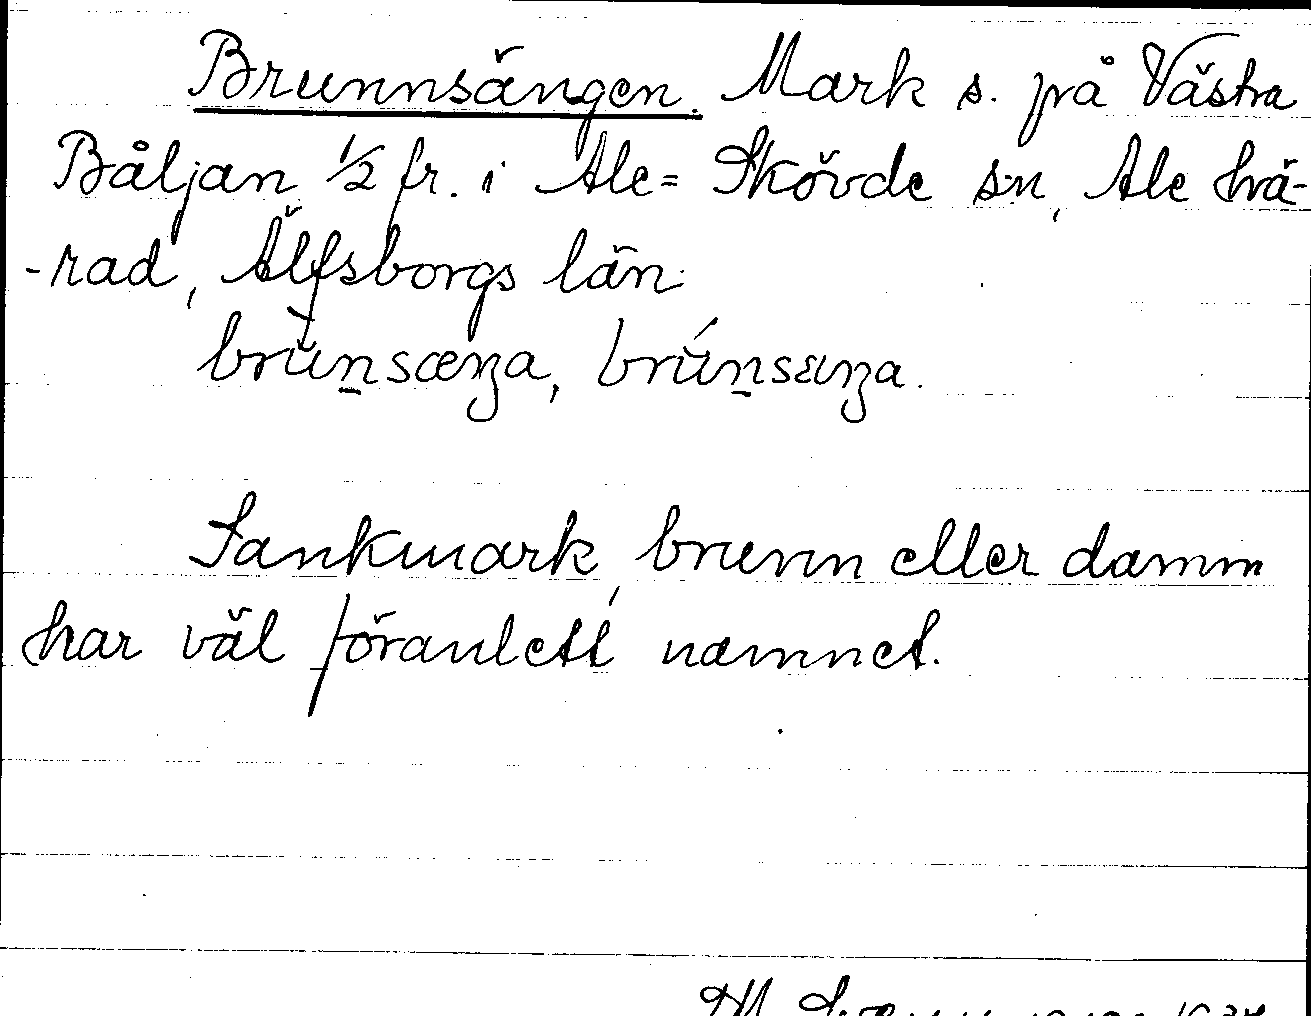 Brunnsängen. Mark s. på Västra
Båljan ½ fr. i Ale=Skövde s:n, Ale hä-
-rad, Älfsborgs län.
brùn̠sæŋa, brún̠sæŋa.
Sankmark, brunn eller damm
har väl föranlett namnet.